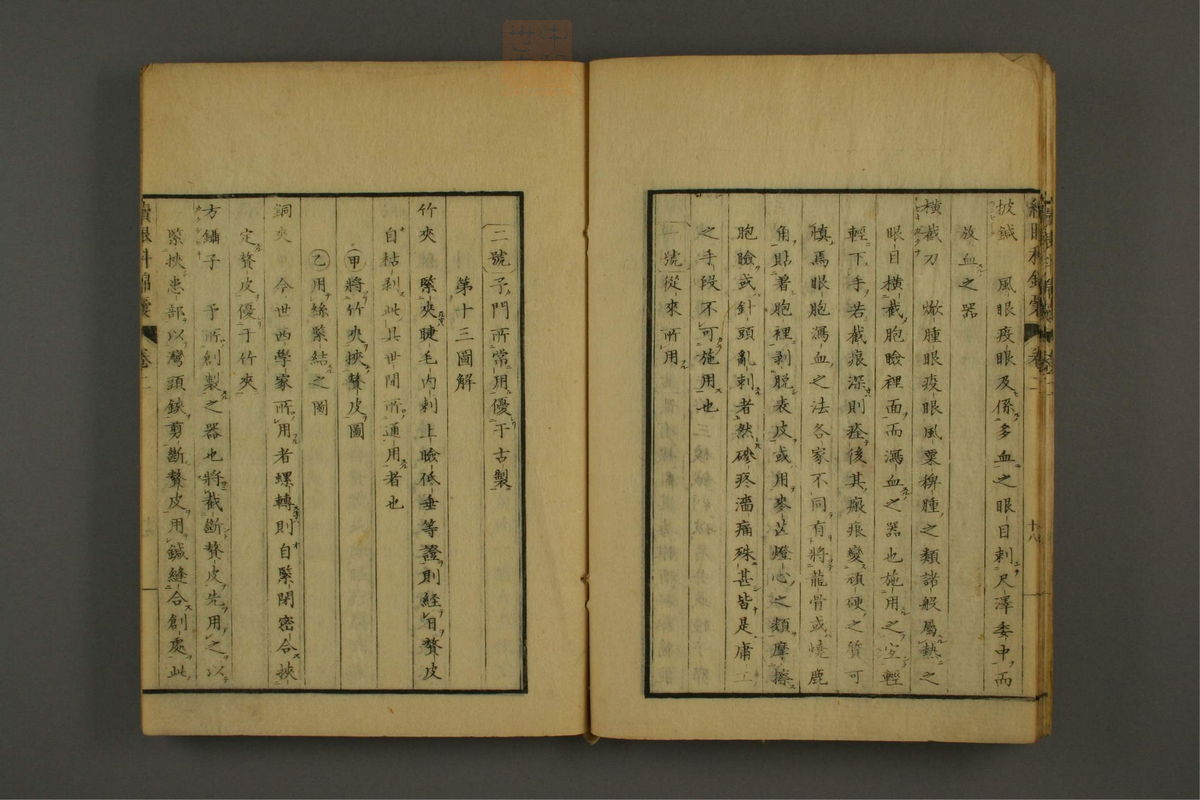 披鍼 風眼疫眼及係多血之眼目刺尺澤委中而
放血之器
横截刀 焮腫眼疫眼風粟椑腫之類諸般屬熱之
眼目横截胞瞼裡面而瀉血之器也施用之宜輕
輕下手若截痕深則痊後其瘢痕變頑硬之質可
慎焉眼胞瀉血之法各家不同有將龍骨或燒鹿
角貼着胞裡剥脱表皮或用麥芒燈心之類摩擦
胞瞼或針頭亂刺者然磣疼濇痛殊甚皆是庸工
之手段不可施用也
一號從來所用
二號予門所常用優于古製
第十三圖解
竹夾 緊夾睫毛内刺上瞼低垂等證則經日贅皮
自枯剥此其世間所通用者也
甲將竹夾挾贅皮圖
乙用絲緊結之圖
銅夾 今世西學家所用者螺轉則自緊閉密合挾
定贅皮優于竹夾
方鑷子 予所創製之器也將截斷贅皮先用之以
緊挾患部以彎頭鋏剪斷贅皮用鍼縫合創處此
續眼科錦囊 卷二
十八